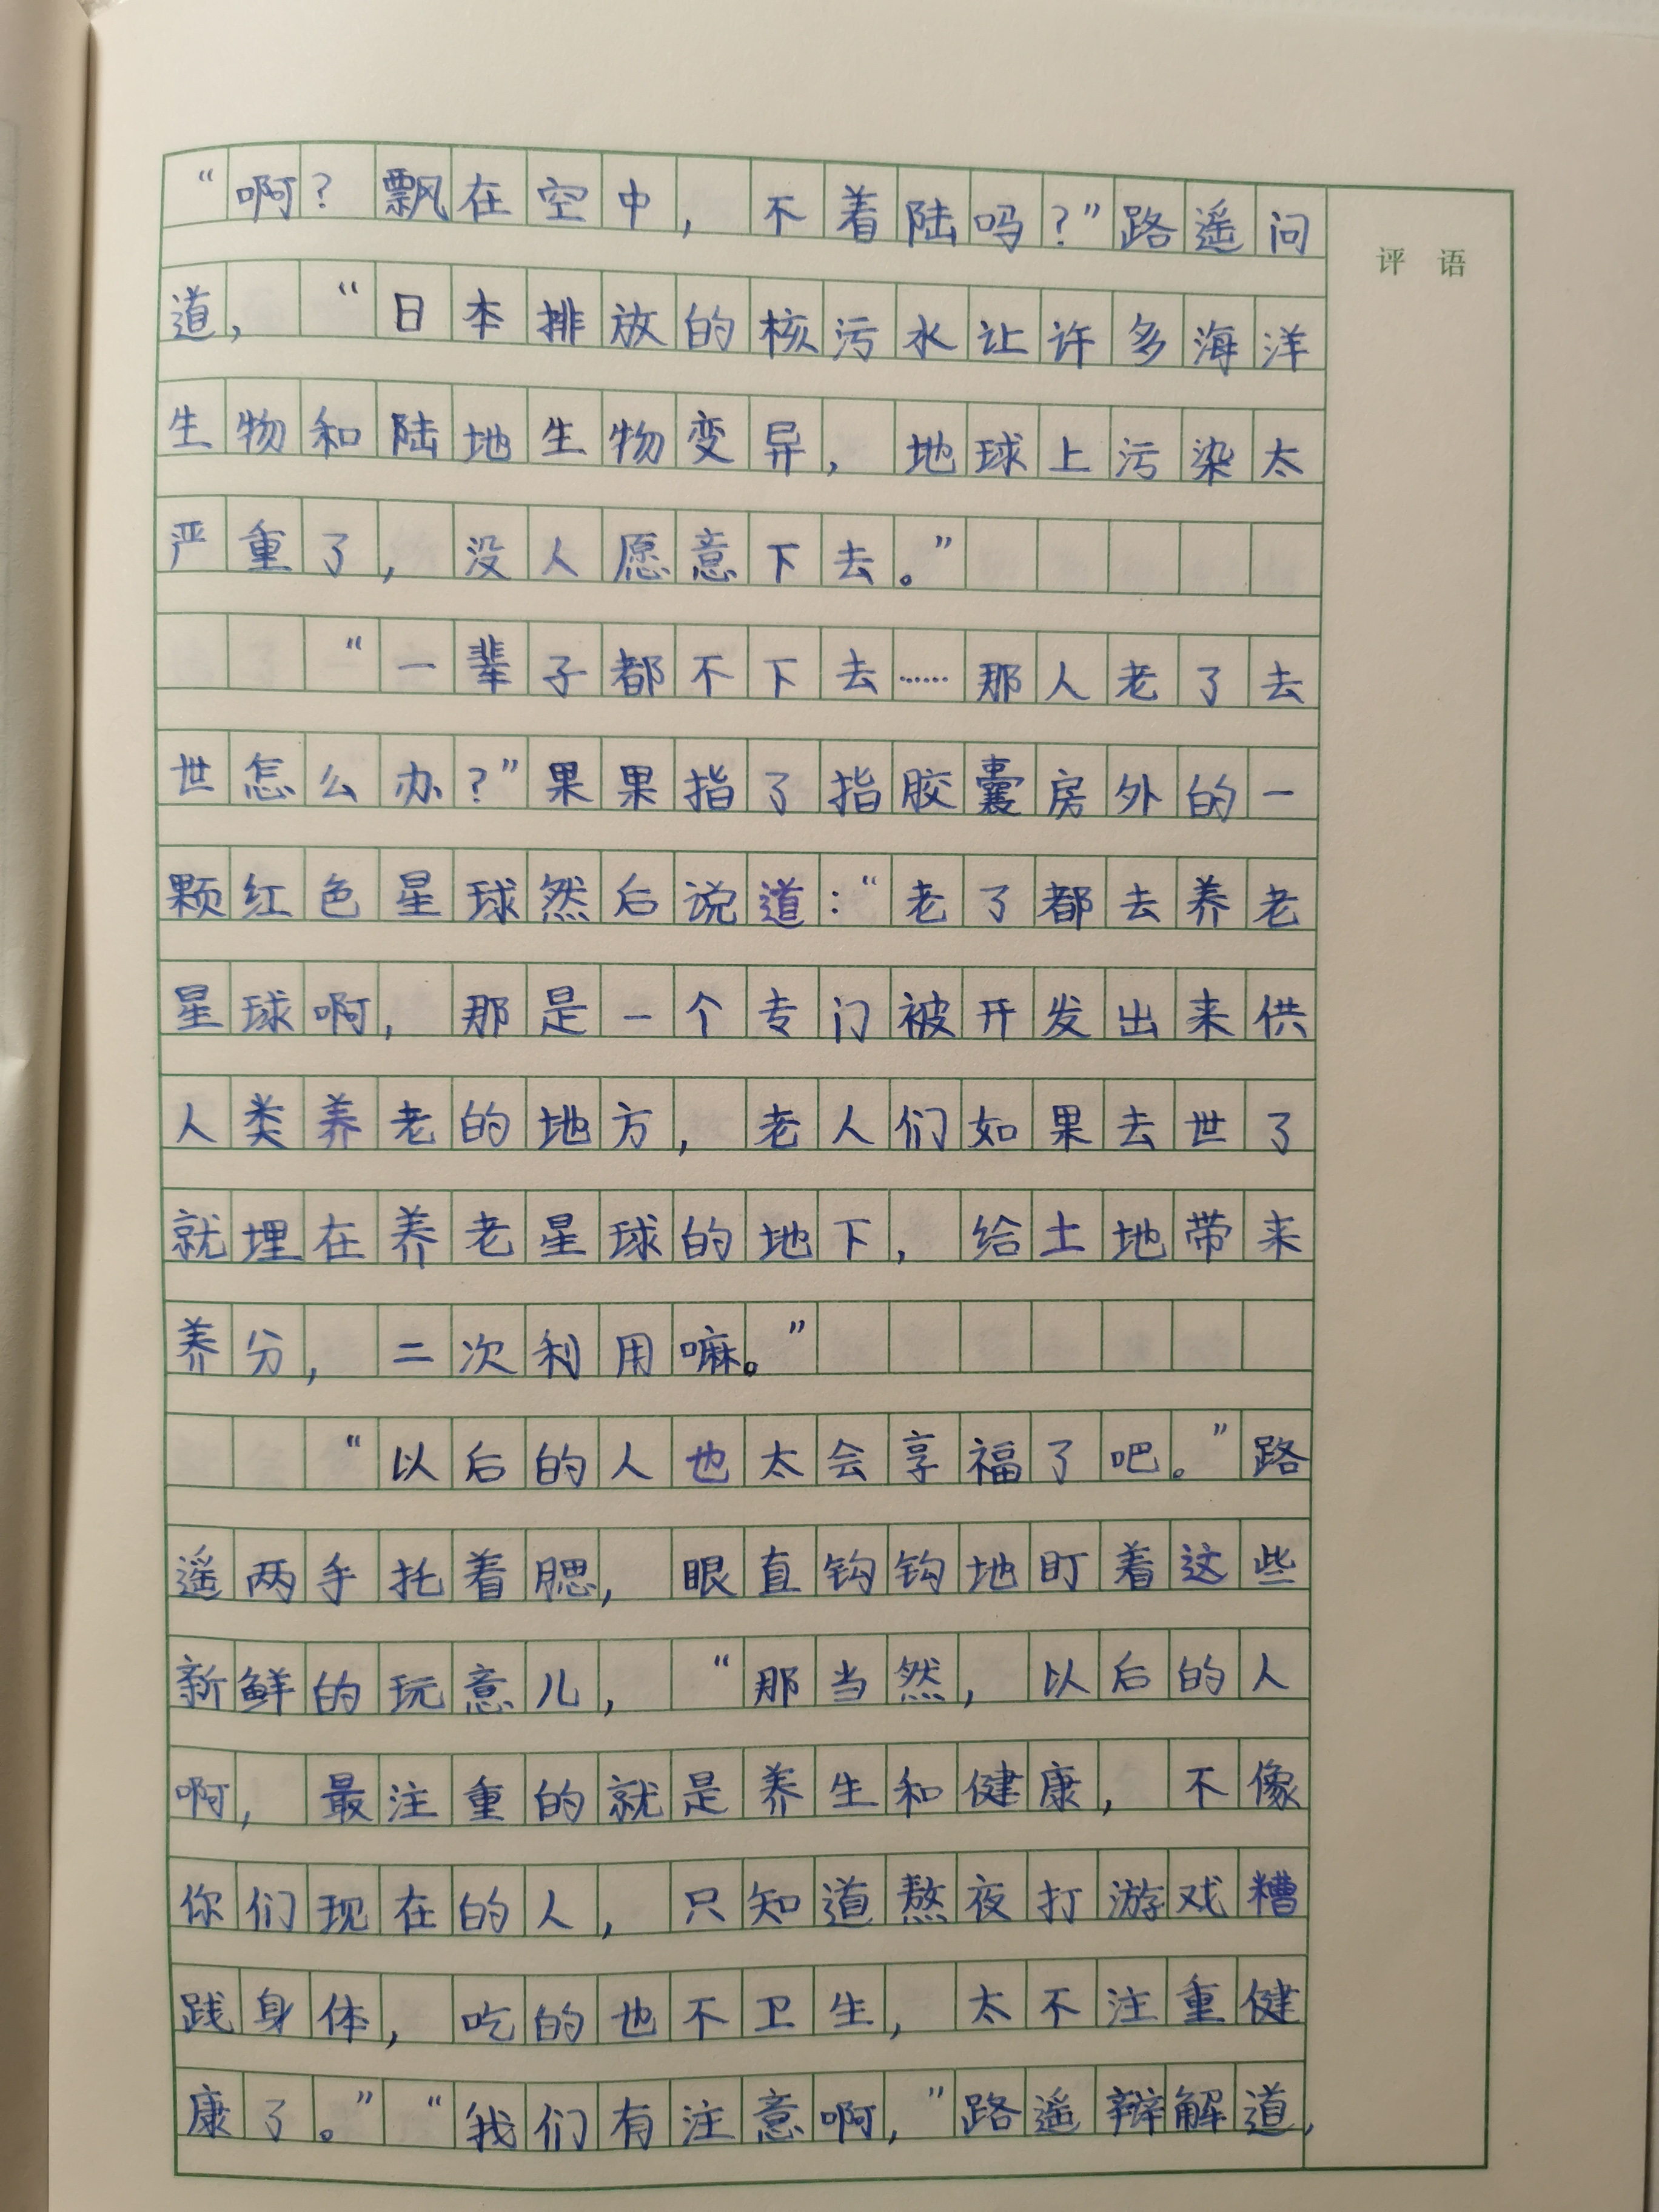 “啊？飘在空中，不着陆吗？”路遥问
评 语
道，“日本排放的核污水让许多海洋
生物和陆地生物变异，地球上污染太
严重了，没人愿意下去。”
“一辈子都不下去……那人老了去
世怎么办？”果果指了指胶囊房外的一
颗红色星球然后说道：“老了都去养老
星球啊，那是一个专门被开发出来供
人类养老的地方，老人们如果去世了
就埋在养老星球的地下，给土地带来
养分，二次利用嘛。”
“以后的人也太会享福了吧。”路
遥两手托着腮，眼直钩钩地盯着这些
新鲜的玩意儿，“那当然，以后的人
啊，最注重的就是养生和健康，不像
你们现在的人，只知道熬夜打游戏糟
践身体，吃的也不卫生，太不注重健
康了。”“我们有注意啊，”路遥辩解道，